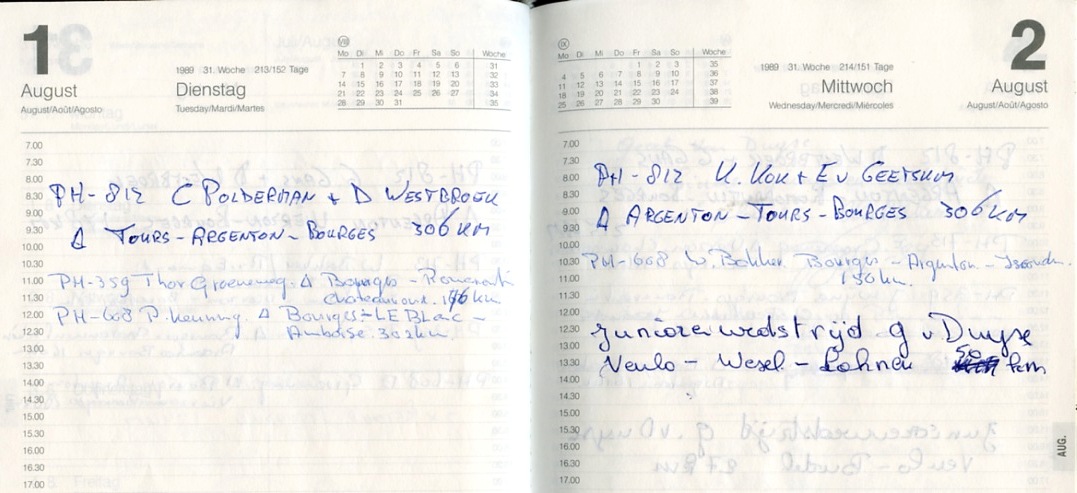 1
August
August/Août/Agosto
1989 31. Woche 213/152 Tage
Dienstag
Tuesday/Mardi/Martes
VIII
Mo Di Mi Do Fr Sa So Woche
1 2 3 4 5 6 31
7 8 9 10 11 12 13 32
14 15 16 17 18 19 20 33
21 22 23 24 25 26 27 34
28 29 30 31 35
7.00
7.30
8.00
PH-812 C POLDERMAN + D WESTBROEK
8.30
9.00
Δ TOURS-ARGENTON-BOURGES 306 KM
9.30
10.00
10.30
PH-359 Thor Groeneweg Δ Bourges -
11.00
11.30
km
12.00
PH-608 P. Δ Bourges - LE Blanc -
12.30
Amboise. 302km
13.00
13.30
14.00
14.30
15.00
15.30
16.00
16.30
17.00
2
August
August/Août/Agosto
1989 31. Woche 214/151 Tage
Mittwoch
Wednesday/Mercredi/Miércoles
IX
Mo Di Mi Do Fr Sa So Woche
1 2 3 35
4 5 6 7 8 9 10 36
11 12 13 14 15 16 17 37
18 19 20 21 22 23 24 38
25 26 27 28 29 30 39
7.00
7.30
8.00
PH-812 K. KOK + E v GEETSUM
8.30
9.00
Δ ARGENTON-TOURS-BOURGES 306 KM
9.30
10.00
10.30
PH-608 W. Bakker Bourges - Argenton -
11.00
km
11.30
12.00
12.30
Juniorenwedstrijd G v Duyse
13.00
13.30
Venlo - Wesel - Lohnen 50 km
14.00
14.30
15.00
15.30
16.00
16.30
17.00
AUG.